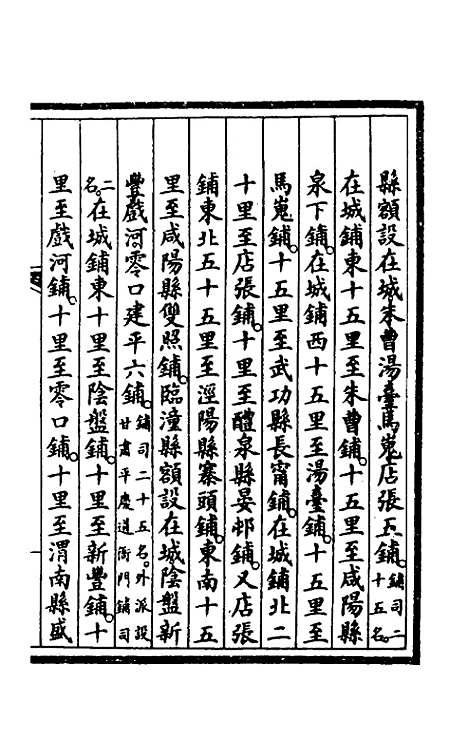 縣額設在城朱曹湯臺馬嵬店張五鋪。鋪司二十五名。
在城鋪東十五里至朱曹鋪。十五里至咸陽縣
泉下鋪。在城鋪西十五里至湯臺鋪。十五里至
馬嵬鋪。十五里至武功縣長甯鋪。在城鋪北二
十里至店張鋪。十里至醴泉縣晏邨鋪。又店張
鋪東北五十五里至涇陽縣寨頭鋪。東南十五
里至咸陽縣雙照鋪。臨潼縣額設在城陰盤新
豐戲河零口建平六鋪。鋪司二十五名。外派設甘肅平慶道衙門鋪司
二名。在城鋪東十里至陰盤鋪。十里至新豐鋪。十
里至戲河鋪。十里至零口鋪。十里至渭南縣盛